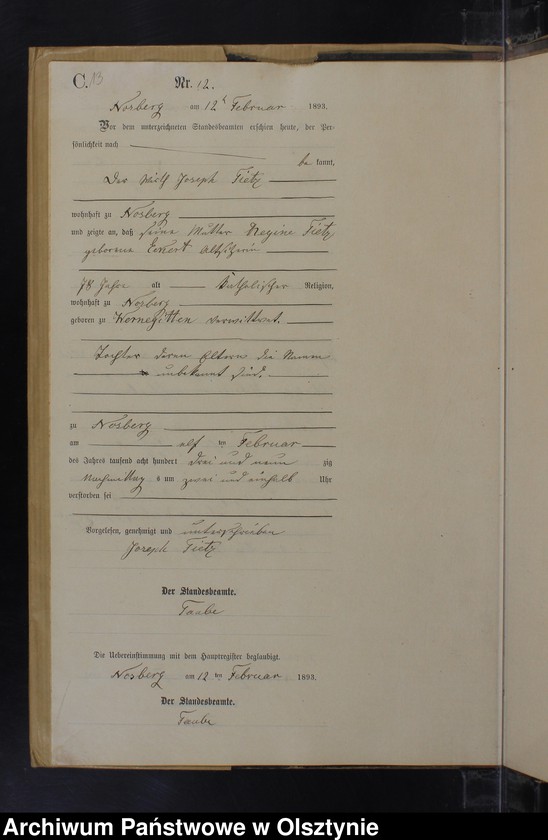 C. 13 Nr. 12.
Nosberg am 12t Februar 1893.
Vor dem unterzeichneten Standesbeamten erschien heute, der Per-
sönlichkeit nach
be kannt,
Der Wirth Joseph Fietz
wohnhaft zu Nosberg
und zeigte an, daß seine Mutter Regina Fietz
geborene Eckert Altsitzerin
78 Jahre alt katholischer Religion,
wohnhaft zu Nosberg
geboren zu Wernegitten verwittwet.
Tochter deren Eltern die Namen
unbekannt sind.
zu Nosberg
am elf ten Februar
des Jahres tausend acht hundert drei und neun zig
Nachmittag s um zwei und einhalb Uhr
verstorben sei
Vorgelesen, genehmigt und unterschrieben
Joseph Fietz
Der Standesbeamte.
Taube
Die Uebereinstimmung mit dem Hauptregister beglaubigt.
Nosberg am 12 ten Februar 1893.
Der Standesbeamte.
Taube
Archiwum Państwowe w Olsztynie